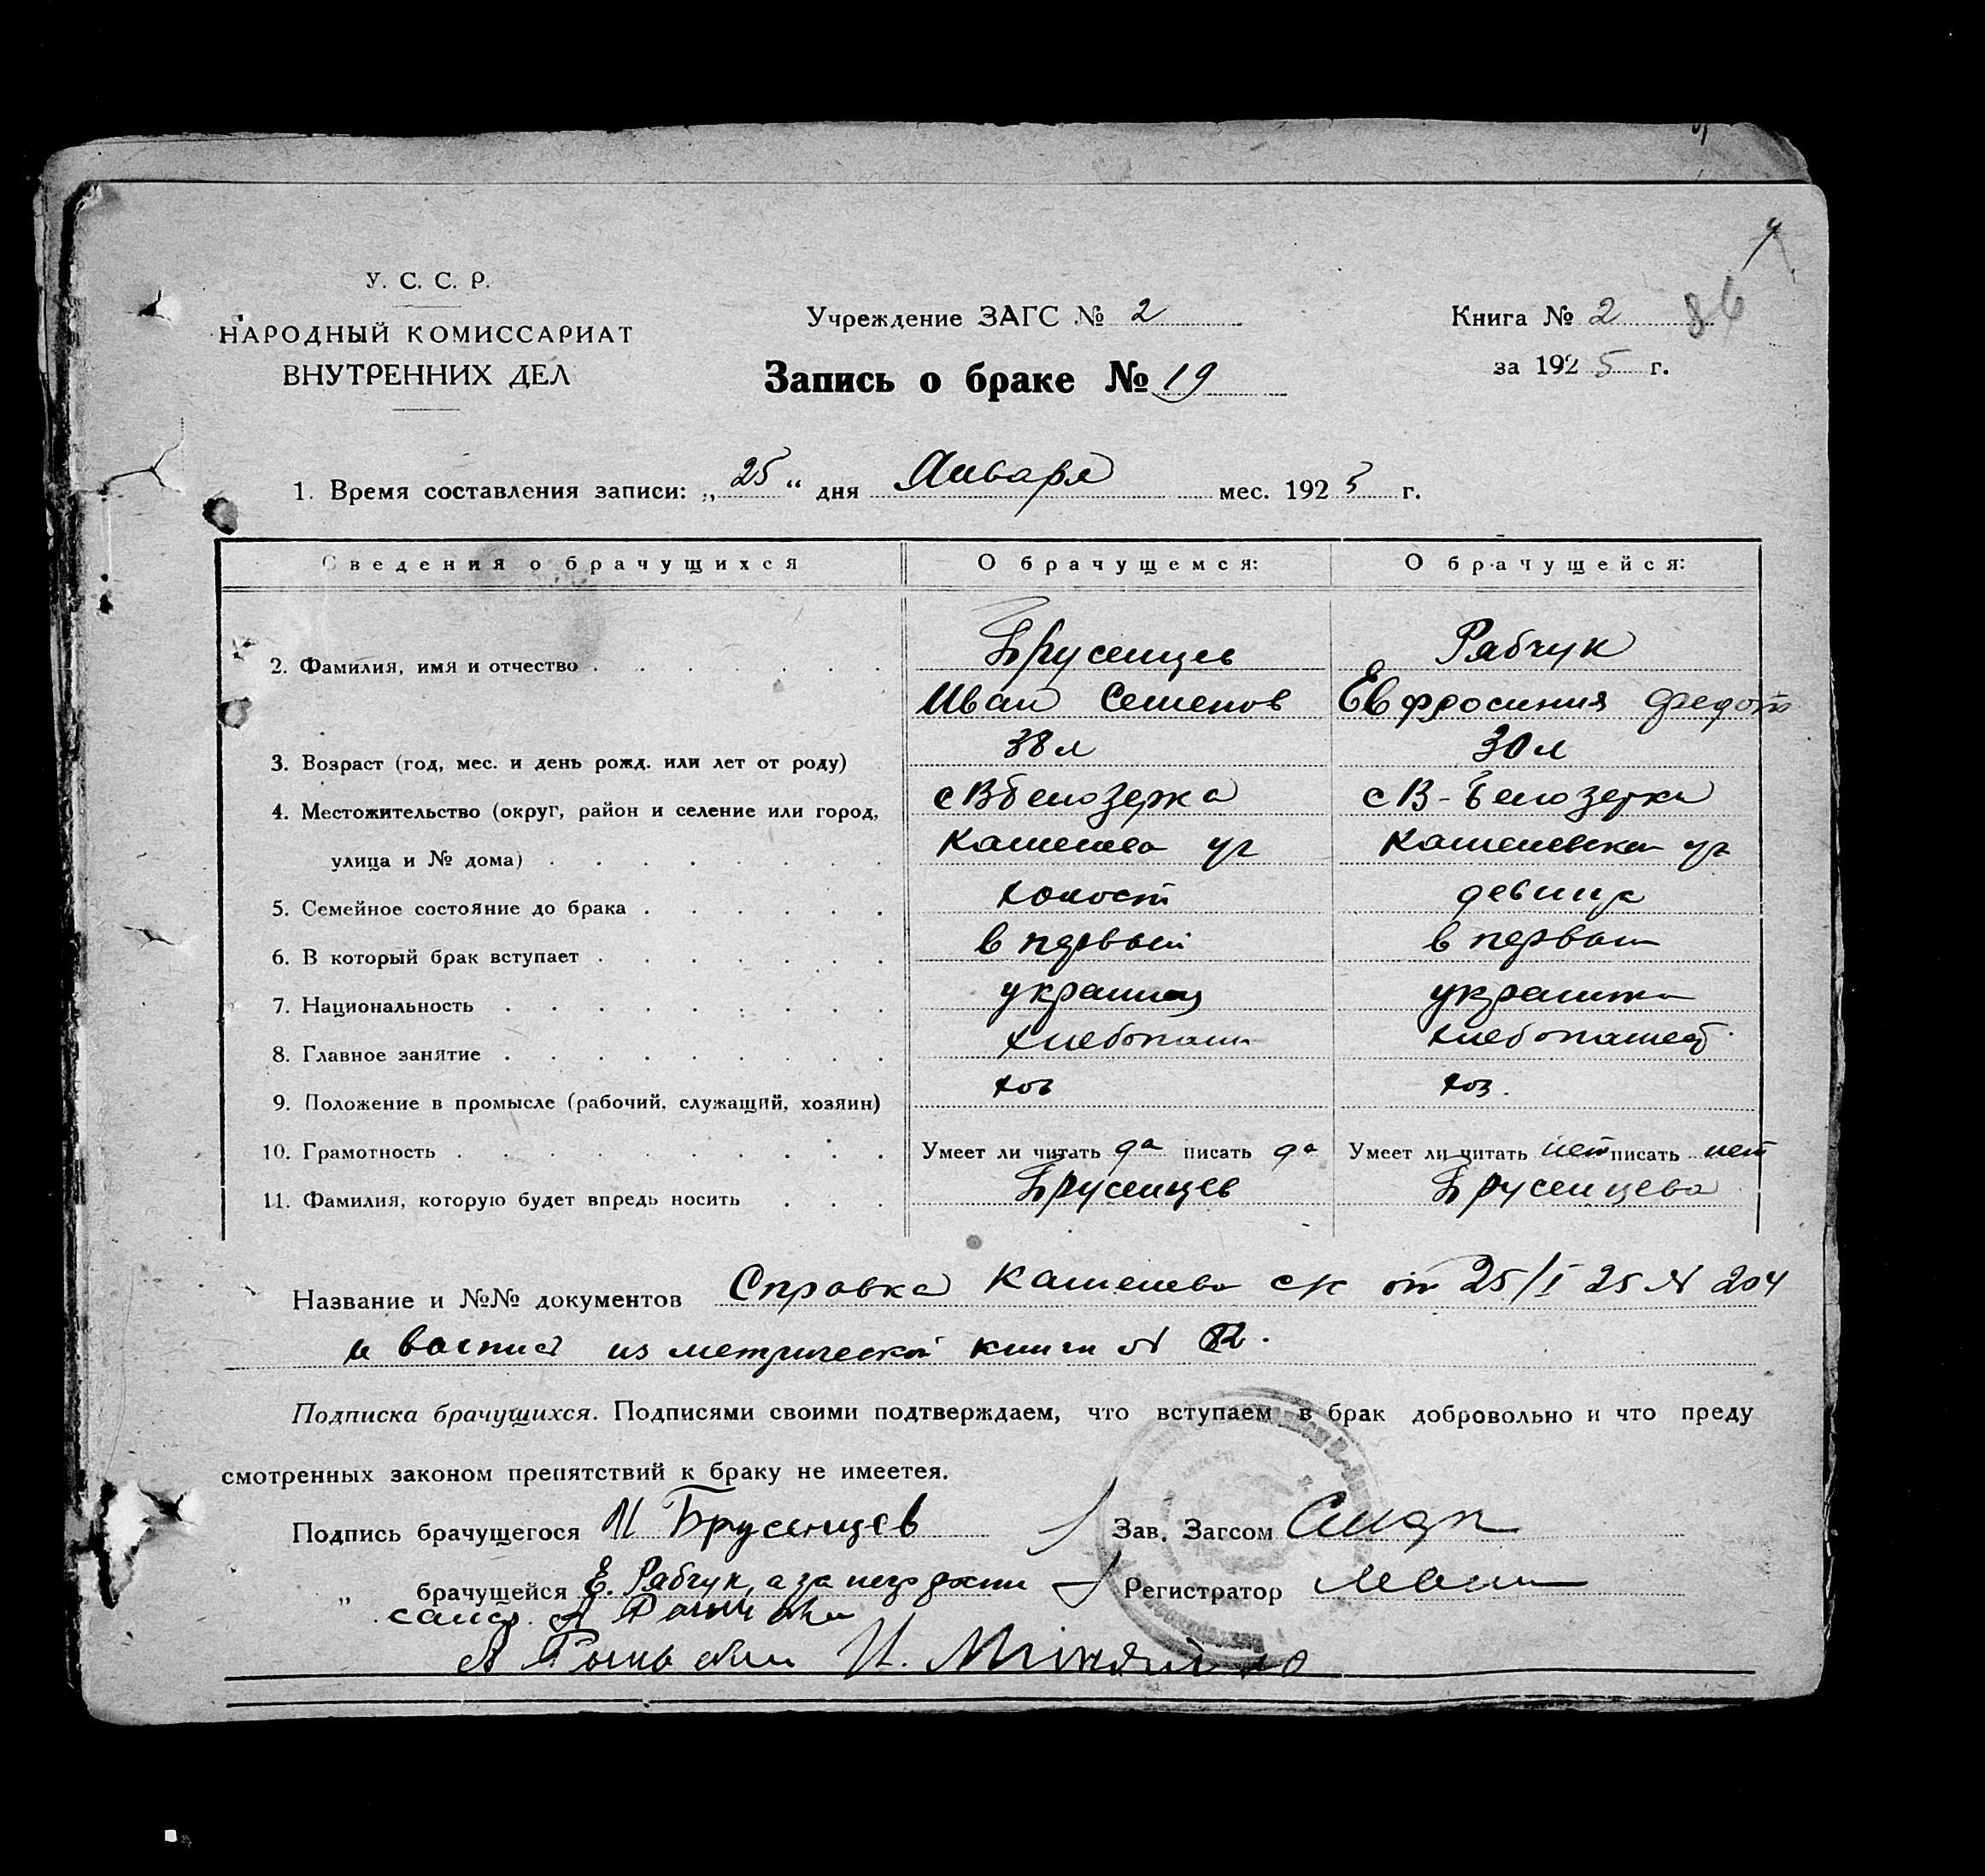 У. С. С. Р.
НАРОДНЫЙ КОМИССАРИАТ
ВНУТРЕННИХ ДЕЛ
Учреждение ЗАГС № 2
Запись о браке № 19
Книга № 2
86
за 1925 г.
1. Время составления записи: „25“ дня Января мес. 1925 г.
Сведения о брачущихся О брачущемся: О брачущейся:
2. Фамилия, имя и отчество Брусенцев Рабчук
Иван Семенов Евфросиния Федот
3. Возраст (год, мес. и день рожд. или лет от роду) 38 л 30 л
4. Местожительство (округ, район и селение или город, с В белозерка с В-Белозерка
улица и № дома)
5. Семейное состояние до брака холост девица
6. В который брак вступает в первый в первый
7. Национальность украинец украинка
8. Главное занятие хлебопаш хлебопашец
9. Положение в промысле (рабочий, служащий, хозяин) хоз хоз.
10. Грамотность Умеет ли читать да писать да Умеет ли читать нет писать нет
11. Фамилия, которую будет впредь носить Брусенцев Брусенцева
Название и №№ документов Справка от 25/I 25 № 204
и из метрической книги №
Подписка брачущихся. Подписями своими подтверждаем, что вступаем в брак добровольно и что преду
смотренных законом препятствий к браку не имеетея.
Подпись брачущегося И Брусенцев Зав. Загсом
„ брачущейся Е. Рабчук, а за Регистратор